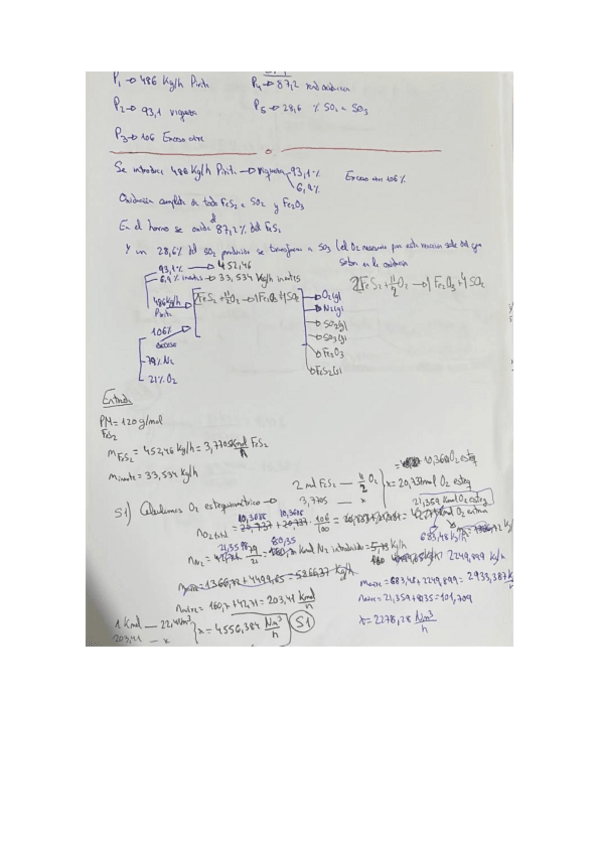 P1 → 486 Kg/h Pirita
P4 → 87,2 rend oxidación
P2 → 93,1 riqueza
P5 → 28,6 % SO2 a SO3
P3 → 106 Exceso aire
Se introduce 486 Kg/h Pirita → riqueza 93,1%
6,9%
Exceso aire 106%
Oxidación completa de todo FeS2 a SO2 y Fe2O3
En el horno se oxida el 87,2% del FeS2
Y un 28,6% del SO2 producido se transforma a SO3 (el O2 necesario para esta reacción sale del que
sobra en la oxidación
93,1% → 452,46
6,9% inertes → 33,534 Kg/h inertes
2FeS2 + 11/2 O2 → 1 Fe2O3 + 4 SO2
486Kg/h
Pirita
2FeS2 + 11/2 O2 → 1Fe2O3 + 4SO2
O2(g)
N2(g)
SO2(g)
SO3(g)
Fe2O3
FeS2(s)
106%
exceso
79% N2
21% O2
Entrada
PM = 120 g/mol
FeS2
mFeS2 = 452,46 Kg/h = 3,7705 Kmol/h FeS2
minerte = 33,534 Kg/h
= 10,368 O2 esteq
2 mol FeS2 — 11/2 O2
3,7705 — x
x = 20,737 Kmol O2 esteq
S1) Calculamos O2 estequiométrico →
10,3685 10,3685
nO2 = 20,737 + 20,737 · 106/100
21,359 Kmol O2 esteq
683,48 Kg/h
21,359 80,35
nN2 = 79/21
Kmol N2 introducido
2249,899 Kg/h
maire = 1366,72 + 4499,65 = 5866,37 Kg/h
maire = 683,48 + 2249,899 = 2933,387 Kg/h
naire = 160,7 + 42,71 = 203,41 Kmol/h
naire = 21,359 + 8035 = 101,709
1 Kmol — 22,4 Nm3
203,41 — x
x = 4556,384 Nm3/h
S1
x = 2278,28 Nm3/h